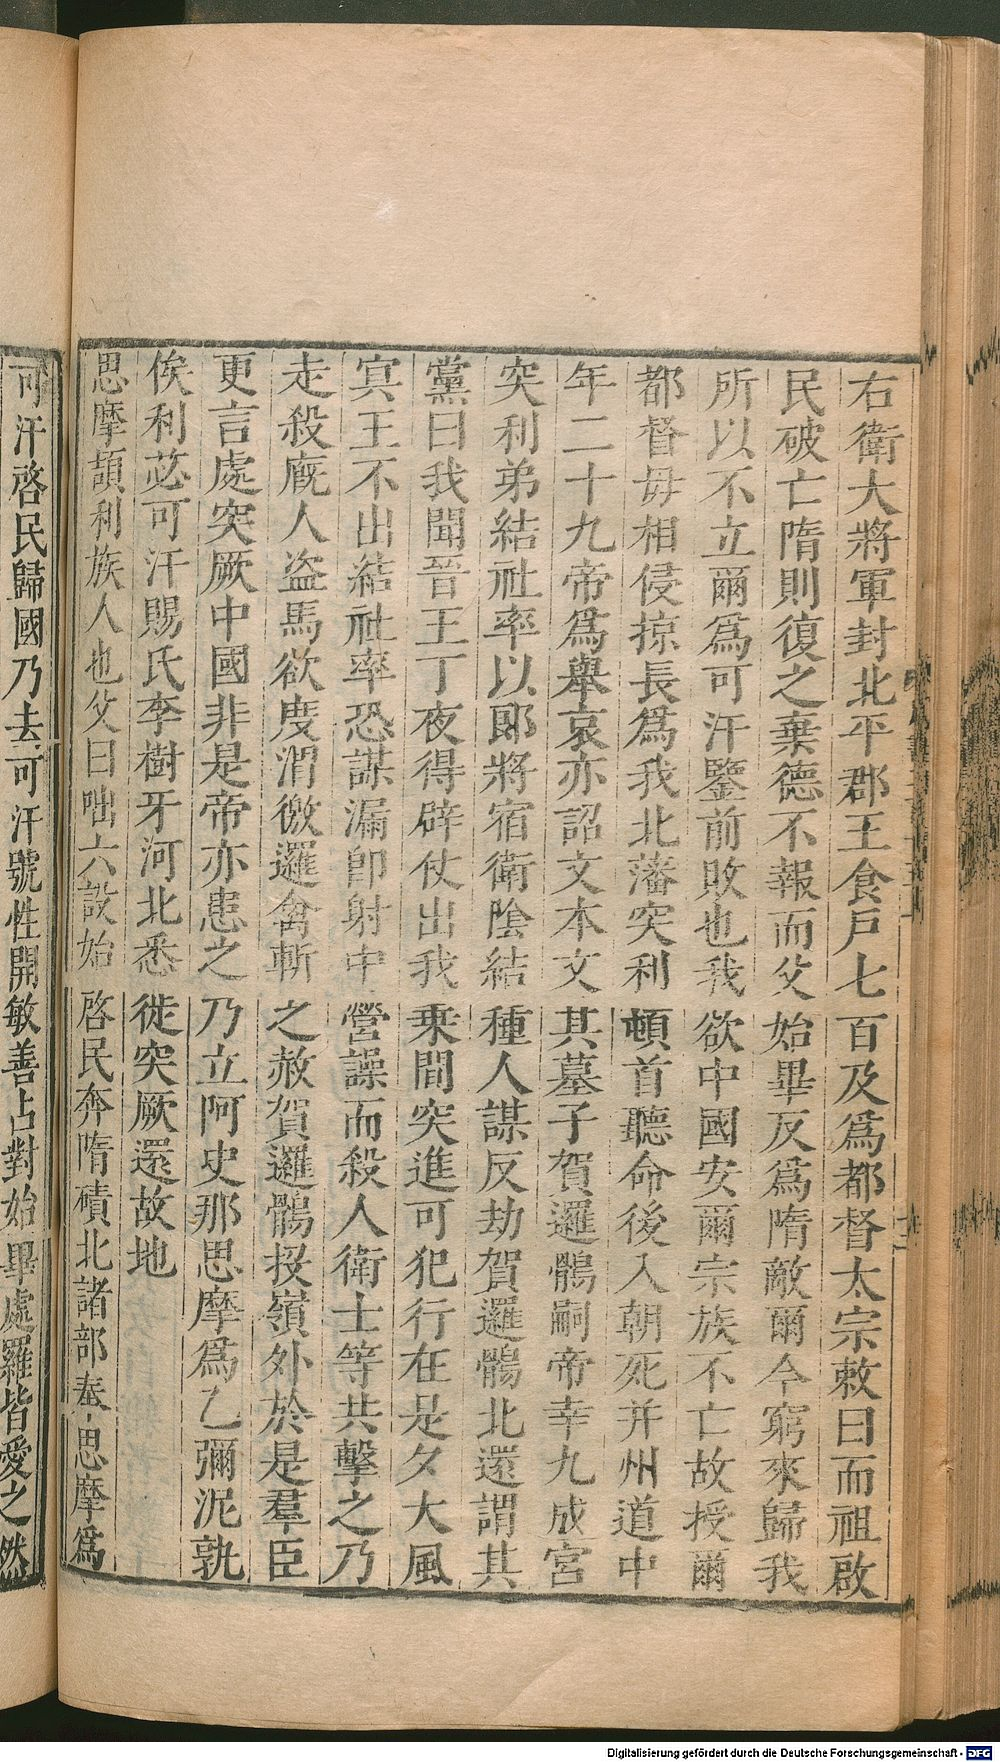 右衛大將軍封北平郡王食戶七百及爲都督太宗敕曰而祖啟
民破亡隋則復之棄德不報而父始畢反爲隋敵爾今窮來歸我
所以不立爾爲可汗鑒前敗也我欲中國安爾宗族不亡故授爾
都督毋相侵掠長爲我北藩突利頓首聽命後入朝死并州道中
年二十九帝爲舉哀亦詔文本文其墓子賀邏鶻嗣帝幸九成宮
突利弟結社率以郎將宿衛陰結種人謀反劫賀邏鶻北還謂其
黨曰我聞晉王丁夜得辟仗出我乗間突進可犯行在是夕大風
㝠王不出結社率恐謀漏卽射中營譟而殺人衛士等共擊之乃
走殺廐人盗馬欲度渭徼邏禽斬之赦賀邏鶻投嶺外於是羣臣
更言處突厥中國非是帝亦患之乃立阿史那思摩爲乙彌泥孰
俟利苾可汗賜氏李樹牙河北悉徙突厥還故地
思摩頡利族人也父曰咄六設始啓民奔隋磧北諸部奉思摩爲
可汗啓民歸國乃去可汗號性開敏善占對始畢處羅皆愛之然
Digitalisierung gefördert durch die Deutsche Forschungsgemeinschaft - DFG